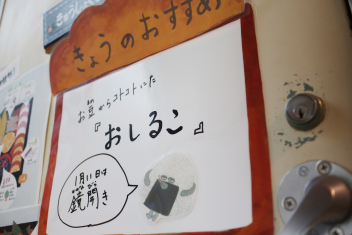 きょうのおすすめ
お豆からコトコトにた
『おしるこ』
1月11日は
鏡開き